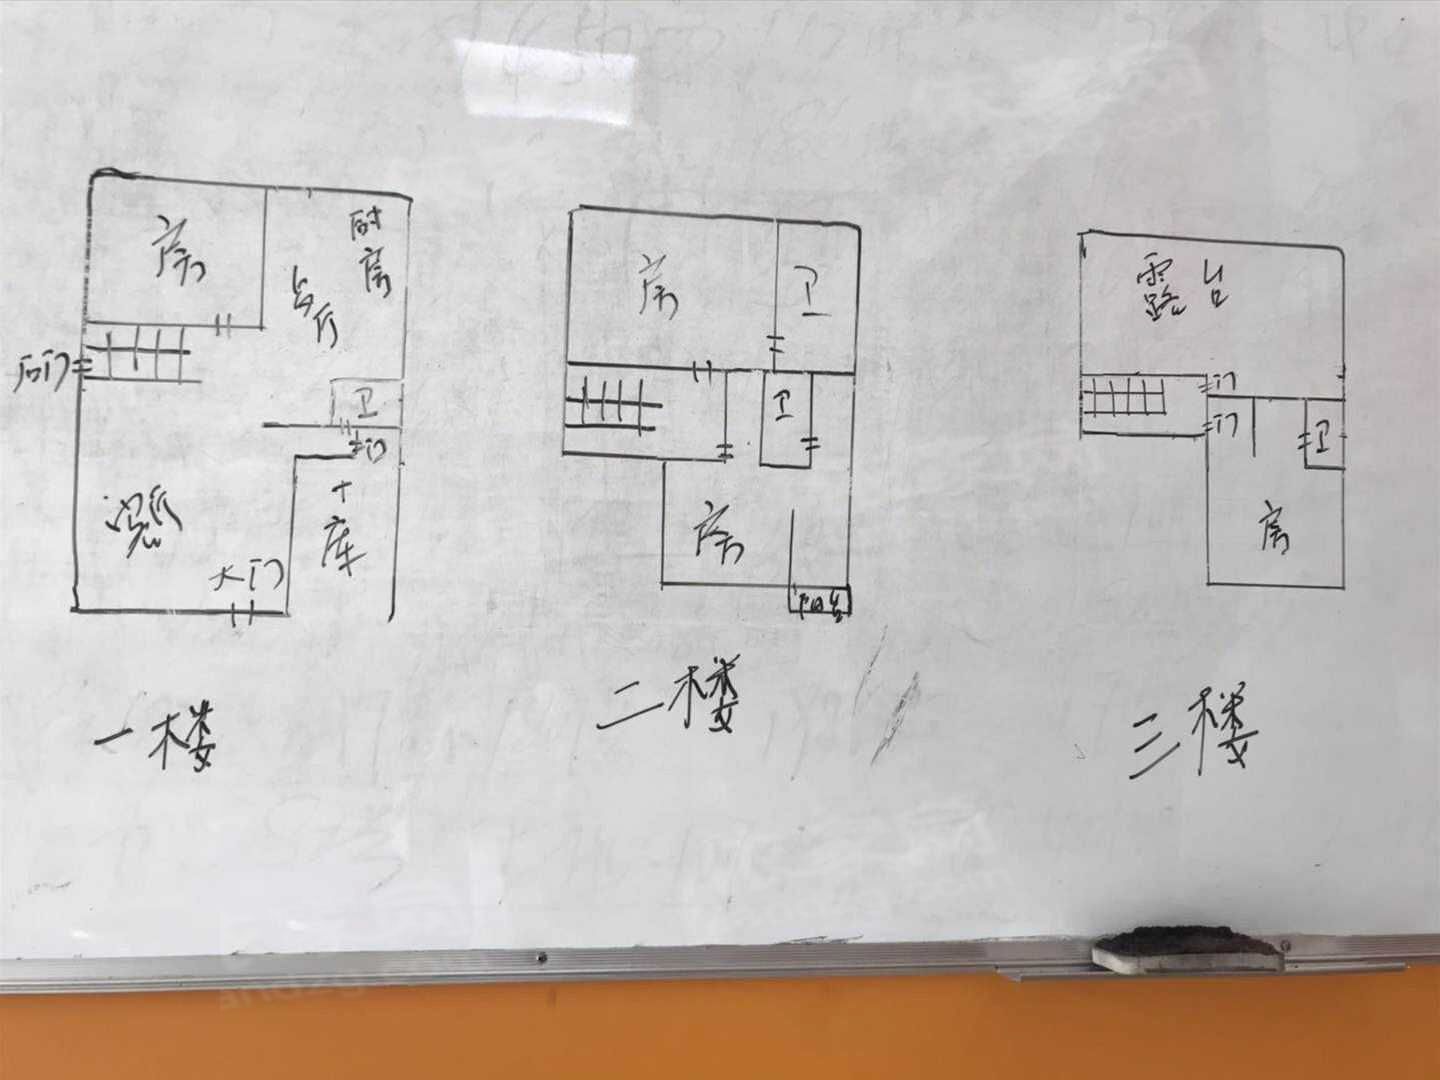 房
厨房
台厅
后门
卫
门
大门
库
一楼
房
卫
卫
房
阳台
二楼
露台
门
门
卫
房
三楼